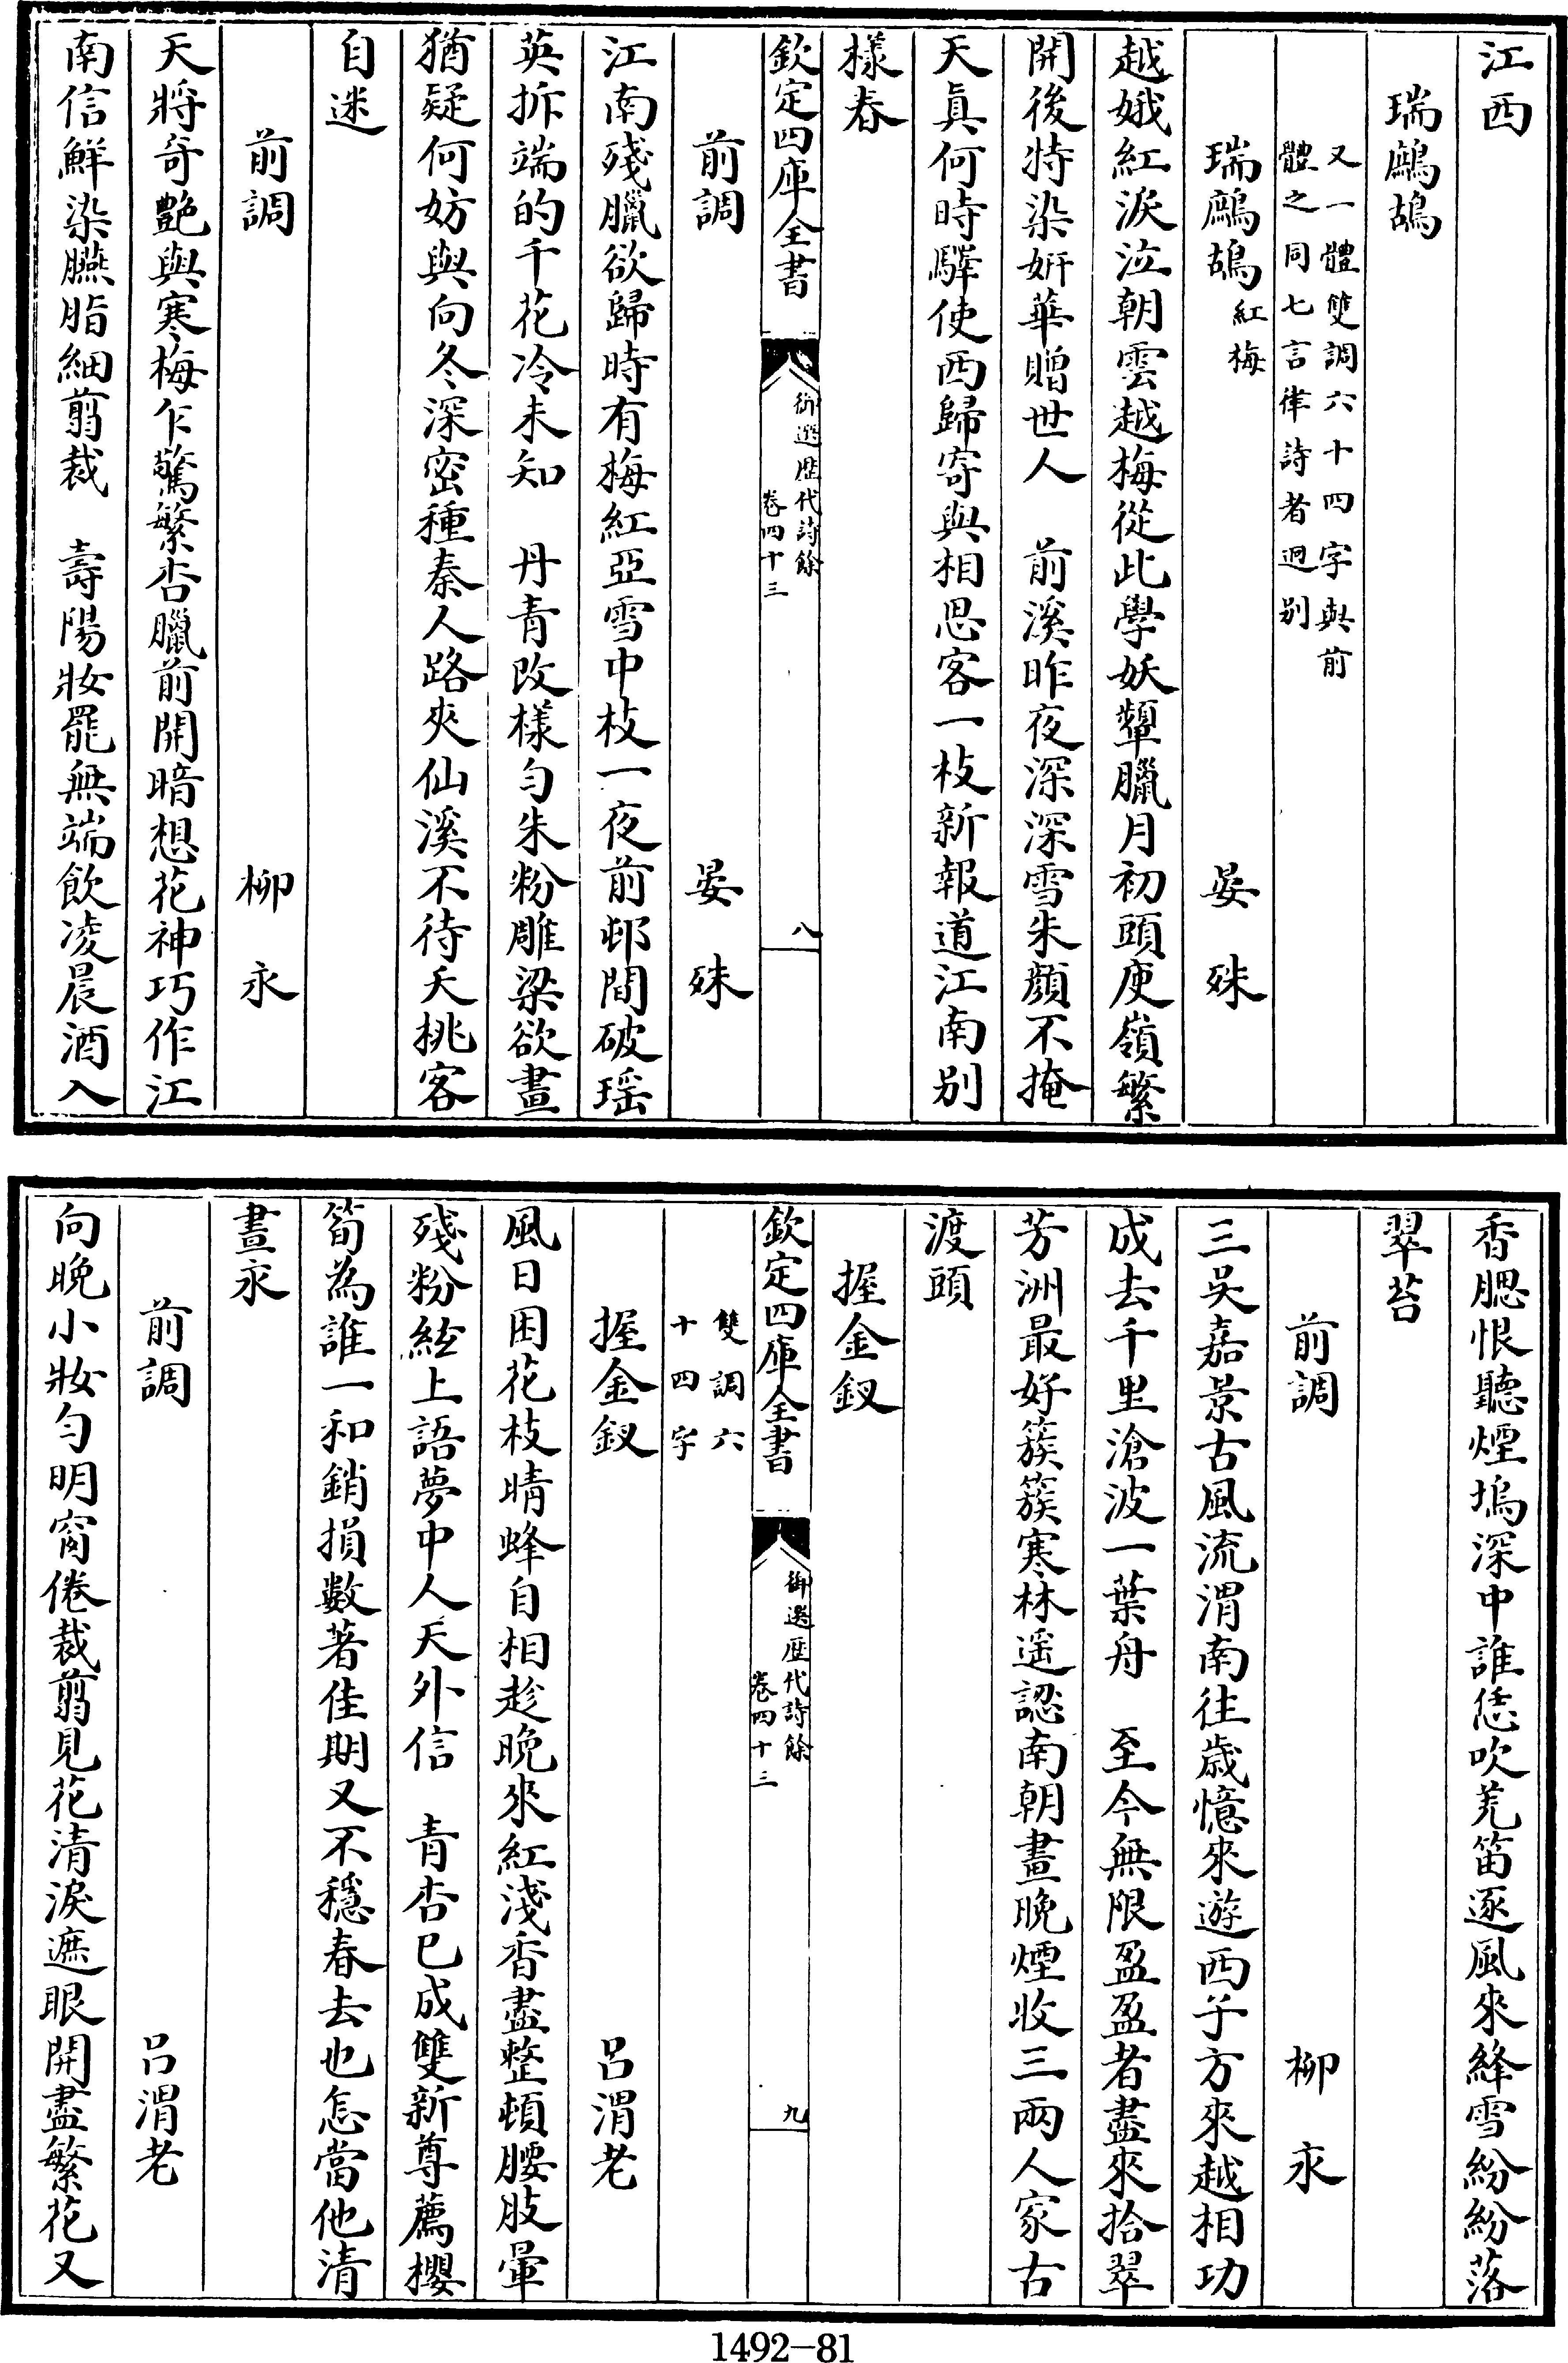 江西
瑞鷓鴣
又一體雙調六十四字與前
體之同七言律詩者迥别
瑞鷓鴣紅梅　晏殊
越娥紅淚泣朝雲越梅從此學妖顰臘月初頭庾嶺繁
開後特染妍華贈世人　前溪昨夜深深雪朱顔不掩
天真何時驛使西歸寄與相思客一枝新報道江南别
樣春
欽定四庫全書　御選歴代詩餘　卷四十三　八
前調　晏殊
江南殘臘欲歸時有梅紅亞雪中枝一夜前邨間破瑶
英拆端的千花冷未知　丹青改様勻朱粉雕梁欲畫
猶疑何妨與向冬深密種秦人路夾仙溪不待夭桃客
自迷
前調　柳永
天將奇艷與寒梅乍驚繁杏臘前開暗想花神巧作江
南信鮮染臙脂細翦裁　壽陽妝罷無端飲凌晨酒入
香腮恨聽煙塢深中誰恁吹羌笛逐風來絳雪紛紛落
翠苔
前調　柳永
三吳嘉景古風流渭南往歲憶來遊西子方來越相功
成去千里滄波一葉舟　至今無限盈盈者盡來拾翠
芳洲最好簇簇寒林遥認南朝畫晚煙收三兩人家古
渡頭
握金釵
欽定四庫全書　御選歴代詩餘　卷四十三　九
雙調六
十四字
握金釵　呂渭老
風日困花枝晴蜂自相趁晚來紅淺香盡整頓腰肢暈
殘粉絃上語夢中人天外信　青杏已成雙新尊薦櫻
筍為誰一和銷損數著佳期又不穩春去也怎當他清
晝永
前調　呂渭老
向晚小妝勻明窗倦裁翦見花清淚遮眼開盡繁花又
1492-81